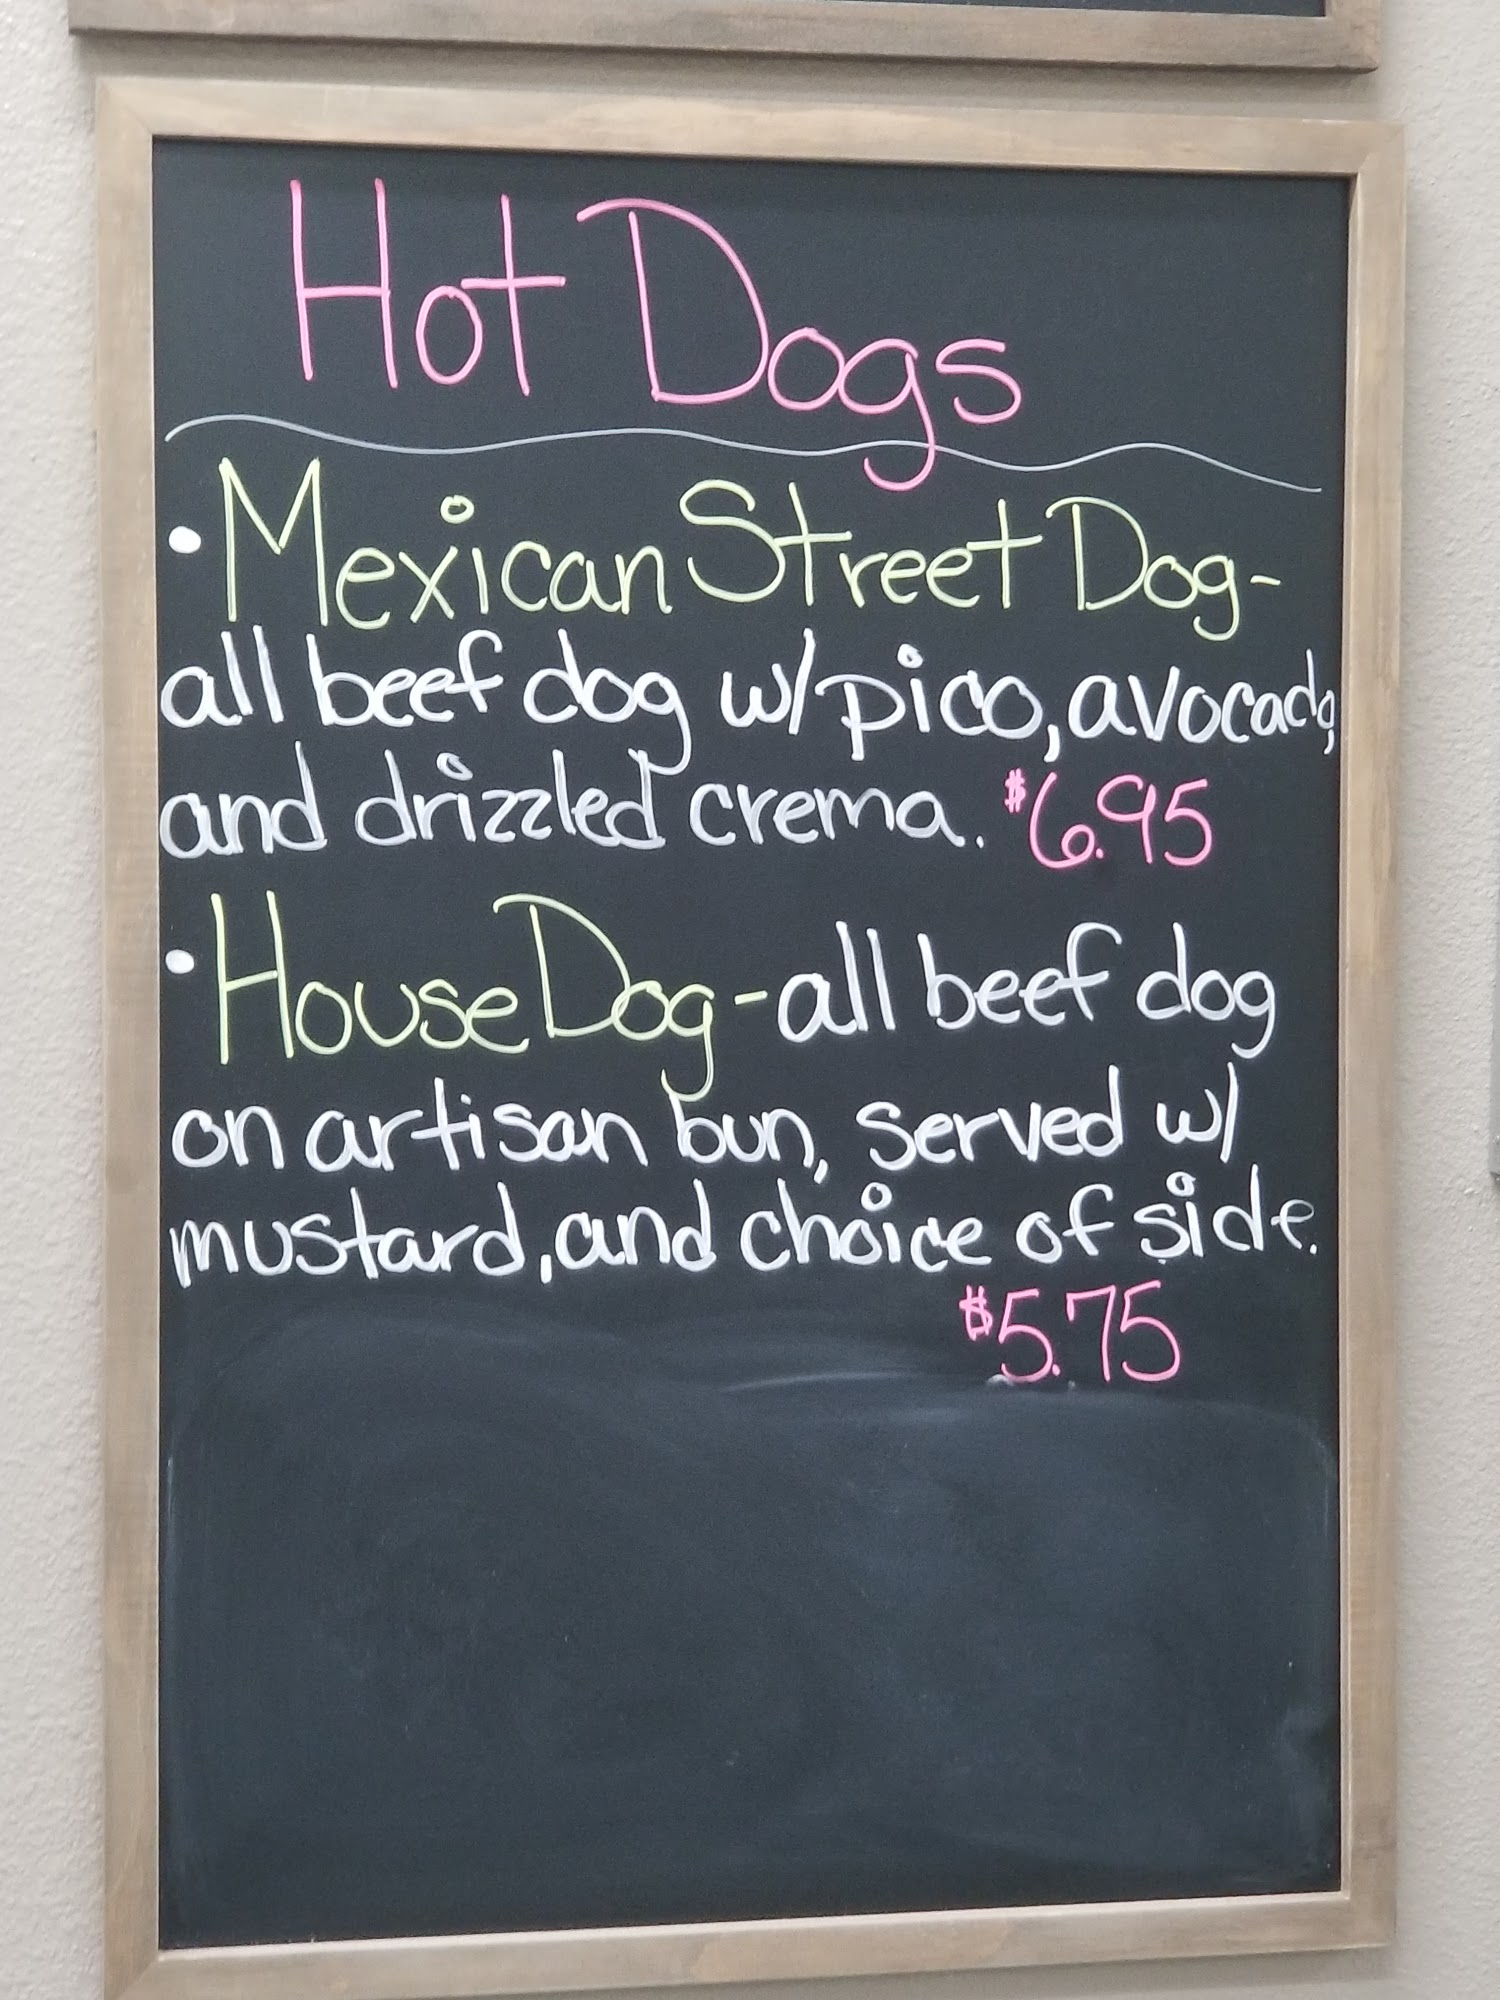 Hot Dogs
• Mexican Street Dog-
all beef dog w/ pico, avocado,
and drizzled crema. $6.95
• House Dog - all beef dog
on artisan bun, served w/
mustard, and choice of side.
$5.75